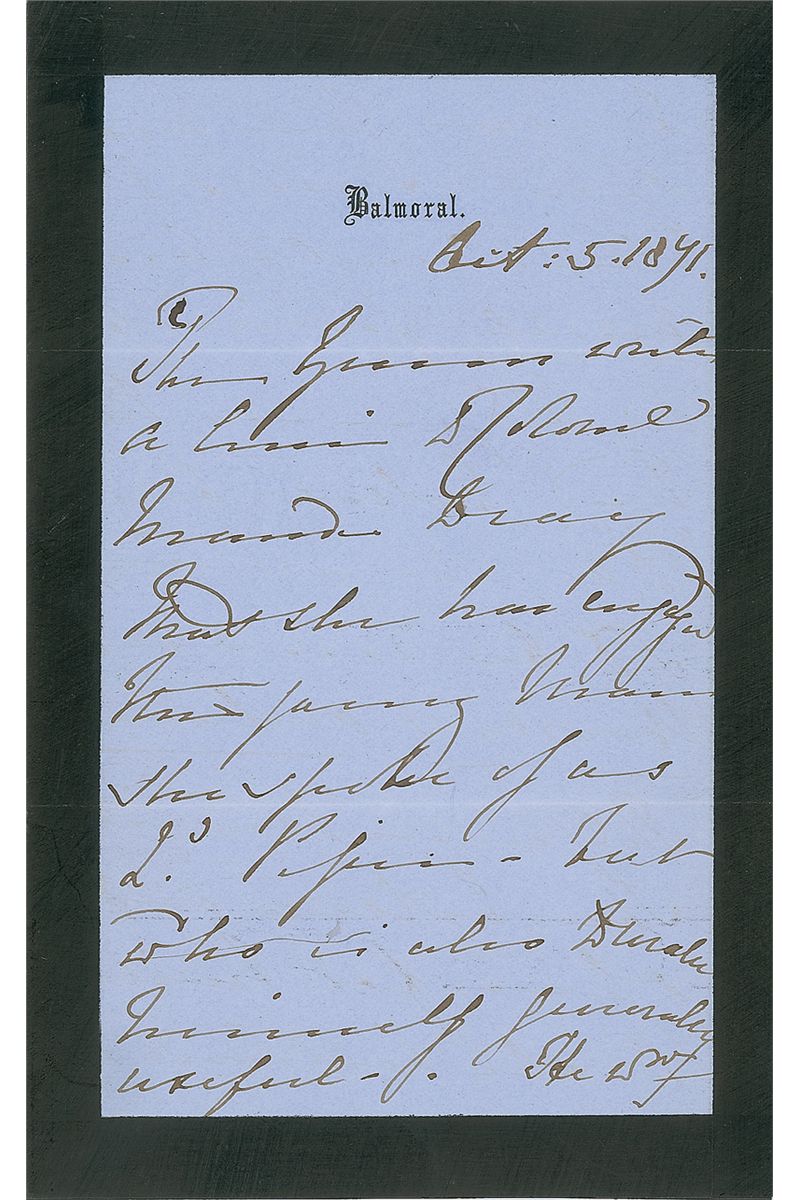 Balmoral.
Oct: 5. 1871.
The Queen writes
a line to Colonel
Maude to say
that she has engaged
the young man
she spoke of as
2d. Piper - but
who is also to make
himself generally
useful -. He